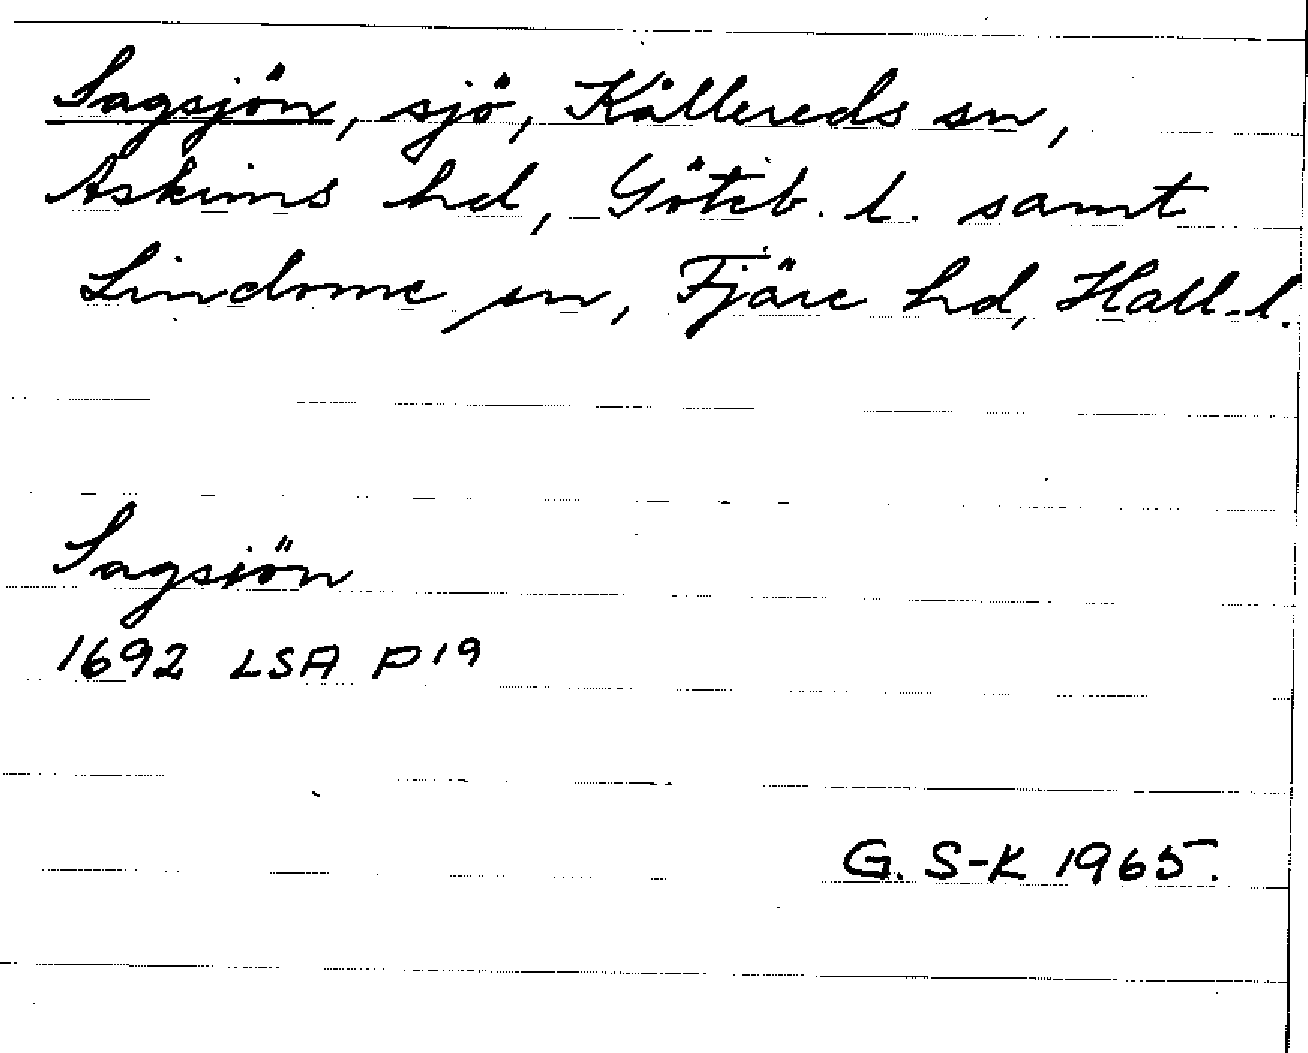 Sagsjön, sjö, Kållereds sn,
Askims hd, Göteb. l. samt
Lindome sn, Fjäre hd, Hall. l.
Sagsiön
1692 LSA P19
G. S-K 1965.